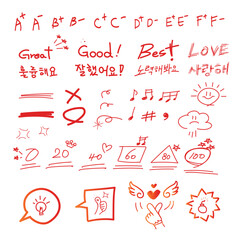 A+ A- B+ B- C+ C- D+ D- E+ E- F+ F-
Great Good! Best! LOVE
훌륭해요 잘했어요! 노력해봐요 사랑해
0 20 40 60 80 100
6